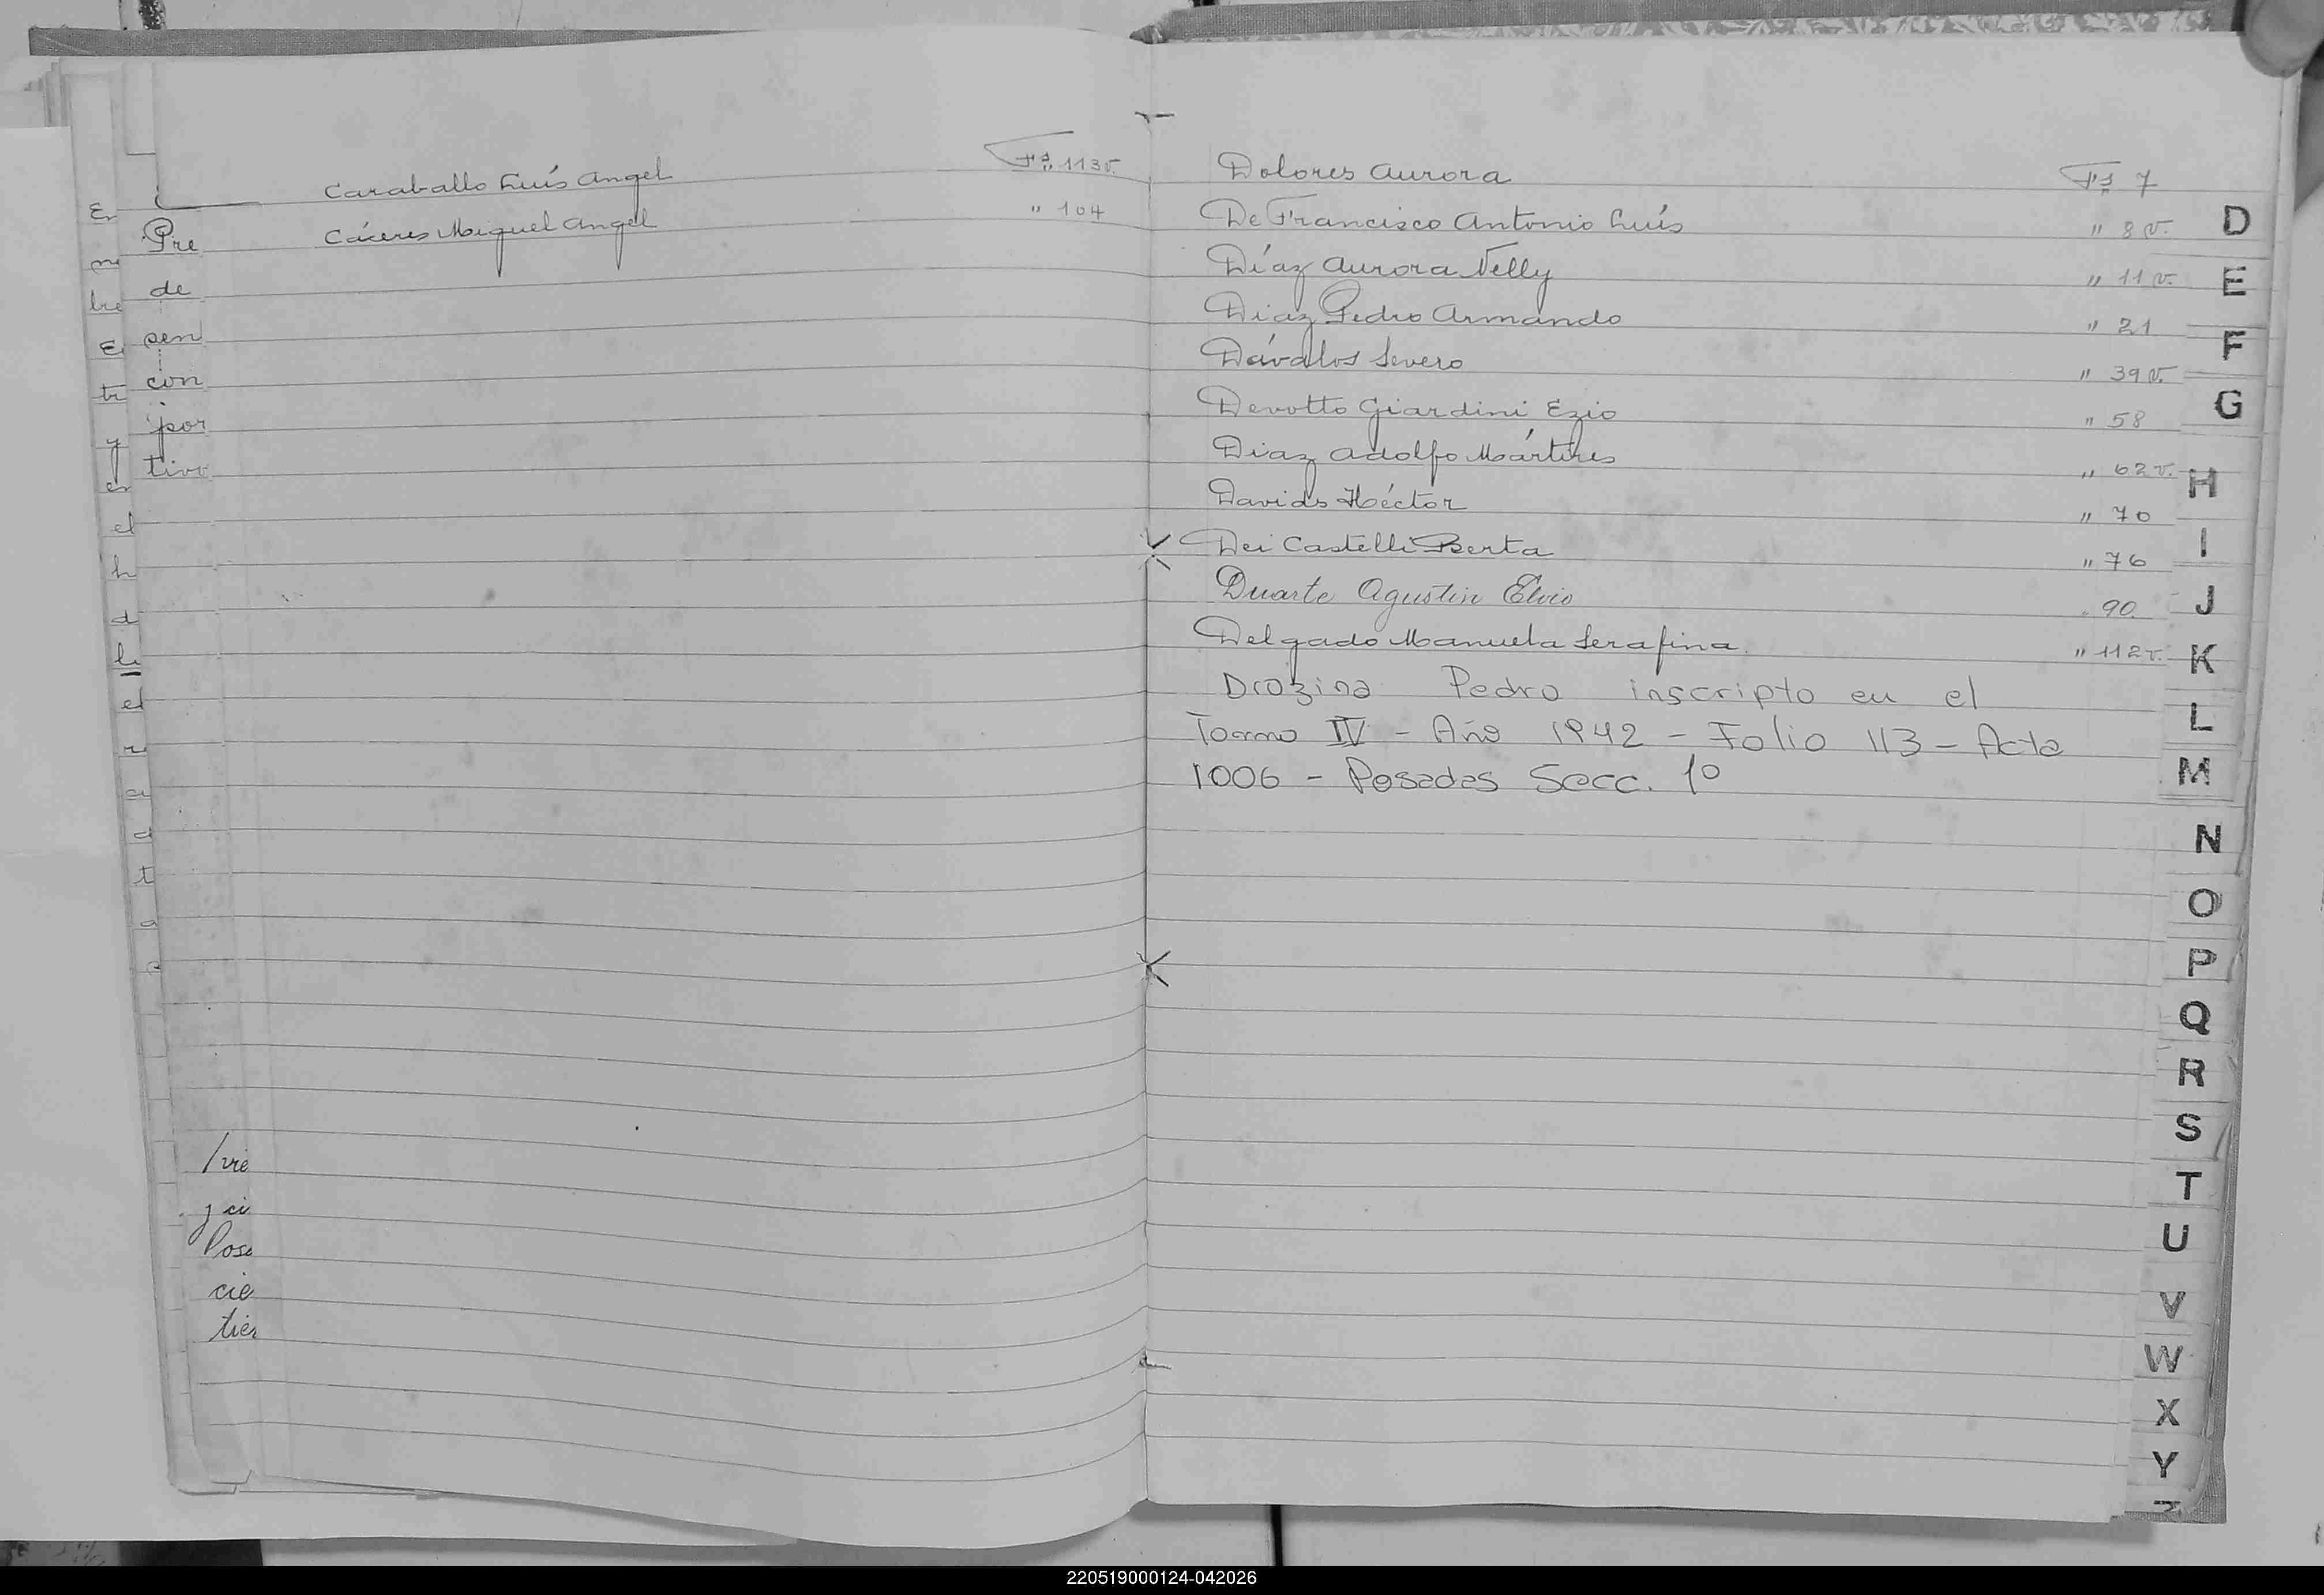 Caraballo Luís Angel Fs. 113v.
Cáceres Miguel Angel " 104
Pre
de
sen
con
por
tivo
/vie
y ci
Posa
cie
tier
Dolores Aurora Fs 7
De Francisco Antonio Luís " 8v.
Díaz Aurora Nelly " 11v.
Diaz Pedro Armando " 21
Dávalos Severo " 39v.
Devotto Giardini Ezio " 58
Diaz Adolfo Mártires " 62v.
Davids Héctor " 70
Dei Castelli Berta " 76
Duarte Agustin Elvio " 90
Delgado Manuela Serafina. " 112v.
Drozina Pedro inscripto en el
Tomo IV - Año 1942 - Folio 113 - Acta
1006 - Posadas Secc. 1º
D
E
F
G
H
I
J
K
L
M
N
O
P
Q
R
S
T
U
V
W
X
Y
220519000124-042026